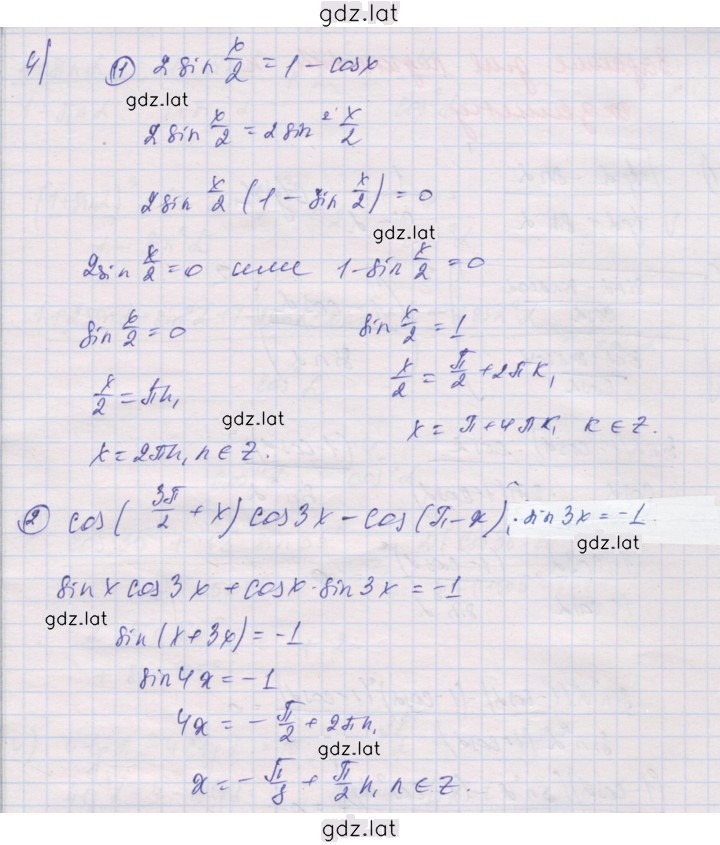 gdz.lat
4) ① 2 sin x/2 = 1 - cos x
gdz.lat
2 sin x/2 = 2 sin² x/2
2 sin x/2 (1 - sin x/2) = 0
gdz.lat
2 sin x/2 = 0 или 1 - sin x/2 = 0
sin x/2 = 0 sin x/2 = 1
x/2 = πn, x/2 = π/2 + 2πk,
gdz.lat
x = 2πn, n ∈ Z. x = π + 4πk, k ∈ Z.
② cos(3π/2 + x) cos 3x - cos(π - x) · sin 3x = -1
gdz.lat
sin x cos 3x + cos x · sin 3x = -1
gdz.lat
sin(x + 3x) = -1
sin 4x = -1
4x = -π/2 + 2πn,
gdz.lat
x = -π/8 + π/2 n, n ∈ Z.
gdz.lat